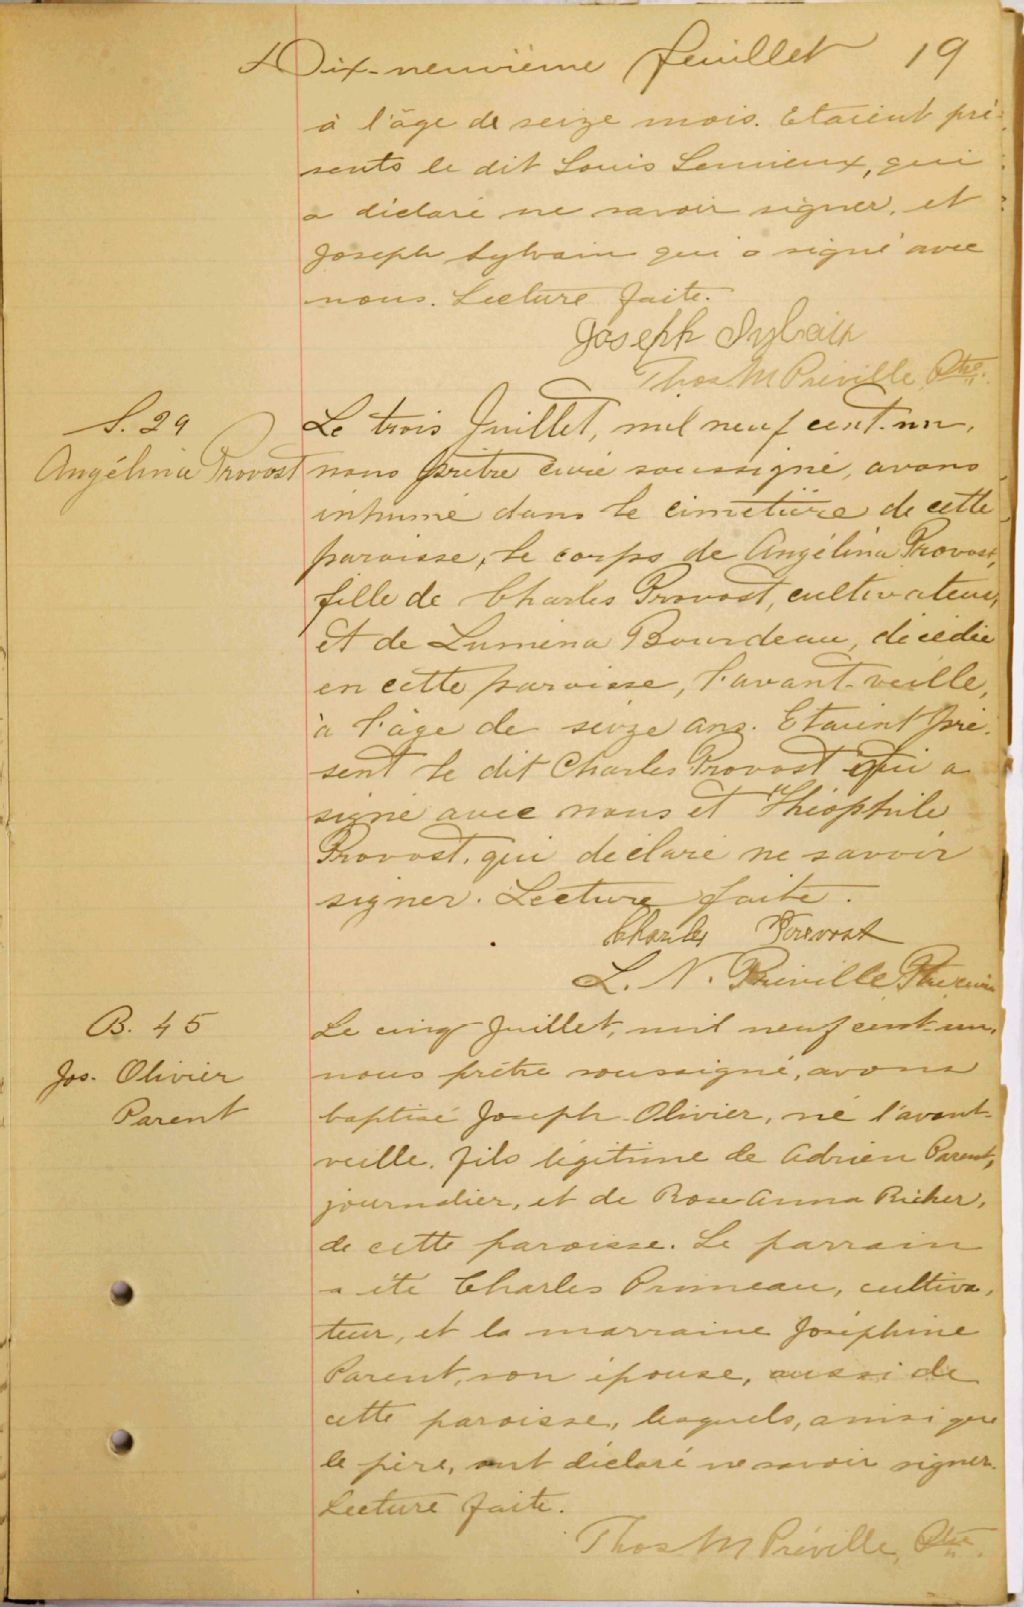 Dix-neuvième feuillet 19
à l'âge de seize mois. Etaient pré-
sents le dit Louis Lemieux, qui
a déclaré ne savoir signer, et
Joseph Sylvain qui a signé avec
nous. Lecture faite.
Joseph Sylvain
Thos M Préville, Ptre.
S. 29
Angélina Provost
Le trois Juillet, mil neuf cent-un,
nous prêtre curé soussigné, avons
inhumé dans le cimetière de cette
paroisse, le corps de Angélina Provost,
fille de Charles Provost, cultivateur,
et de Lumina Bourdeau, décédée
en cette paroisse, l'avant-veille,
à l'âge de seize ans. Etaient pré-
sent le dit Charles Provost qui a
signé avec nous et Théophile
Provost, qui déclaré ne savoir
signer. Lecture faite.
Charles Provost
L. N. Préville Ptre curé
B. 45
Jos. Olivier
Parent
Le cinq Juillet, mil neuf cent-un,
nous prêtre soussigné, avons
baptisé Joseph-Olivier, né l'avant-
veille, fils légitime de Adrien Parent,
journalier, et de Rose-Anna Richer,
de cette paroisse. Le parrain
a été Charles Primeau, cultiva-
teur, et la marraine Joséphine
Parent, son épouse, aussi de
cette paroisse, lesquels, ainsi que
le père, ont déclaré ne savoir signer.
Lecture faite.
Thos M Préville, Ptre.